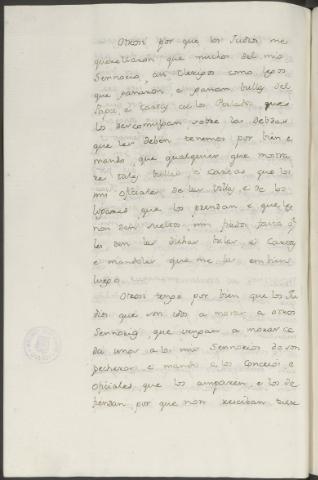 Otrosi por que los Judios me
querellaron que muchos del mio
Sennorio, asi Clerigos como legos
que ganaron e ganan bullas del
Papa e Cartas de los Perlados, que
los descomulgan sobre las debdas
que les deben tenemos por bien e
mando, que qualquier que mostra
re tales bullas o cartas que los
mis oficiales de las Villas e de los
logares que los prendan e que les
non den sueltos nin fiados fasta q̃
les den las dichas bulas e Cartas
e mandoles que me las embien
luego.
Otrosi tengo por bien que los Ju
dios que son idos a morar a otros
Sennorios, que vengan a morar ca
da unos a los mis Sennorios do son
pecheros e mando a los Concejos e
oficiales que los amparen e los de
fiendan por que non resciban